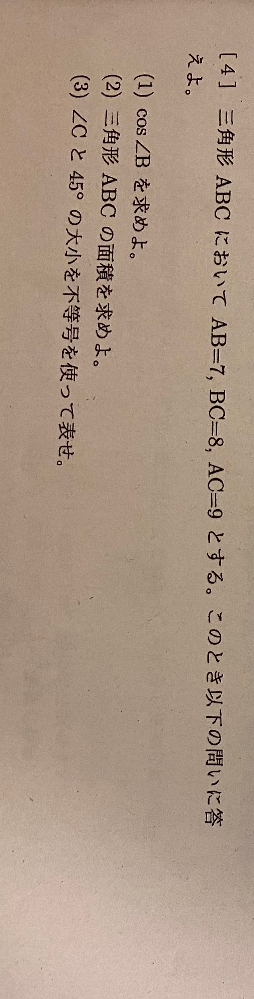 [4] 三角形 ABC において AB=7, BC=8, AC=9 とする。このとき以下の問いに答
えよ。
(1) cos∠B を求めよ。
(2) 三角形 ABC の面積を求めよ。
(3) ∠C と 45° の大小を不等号を使って表せ。